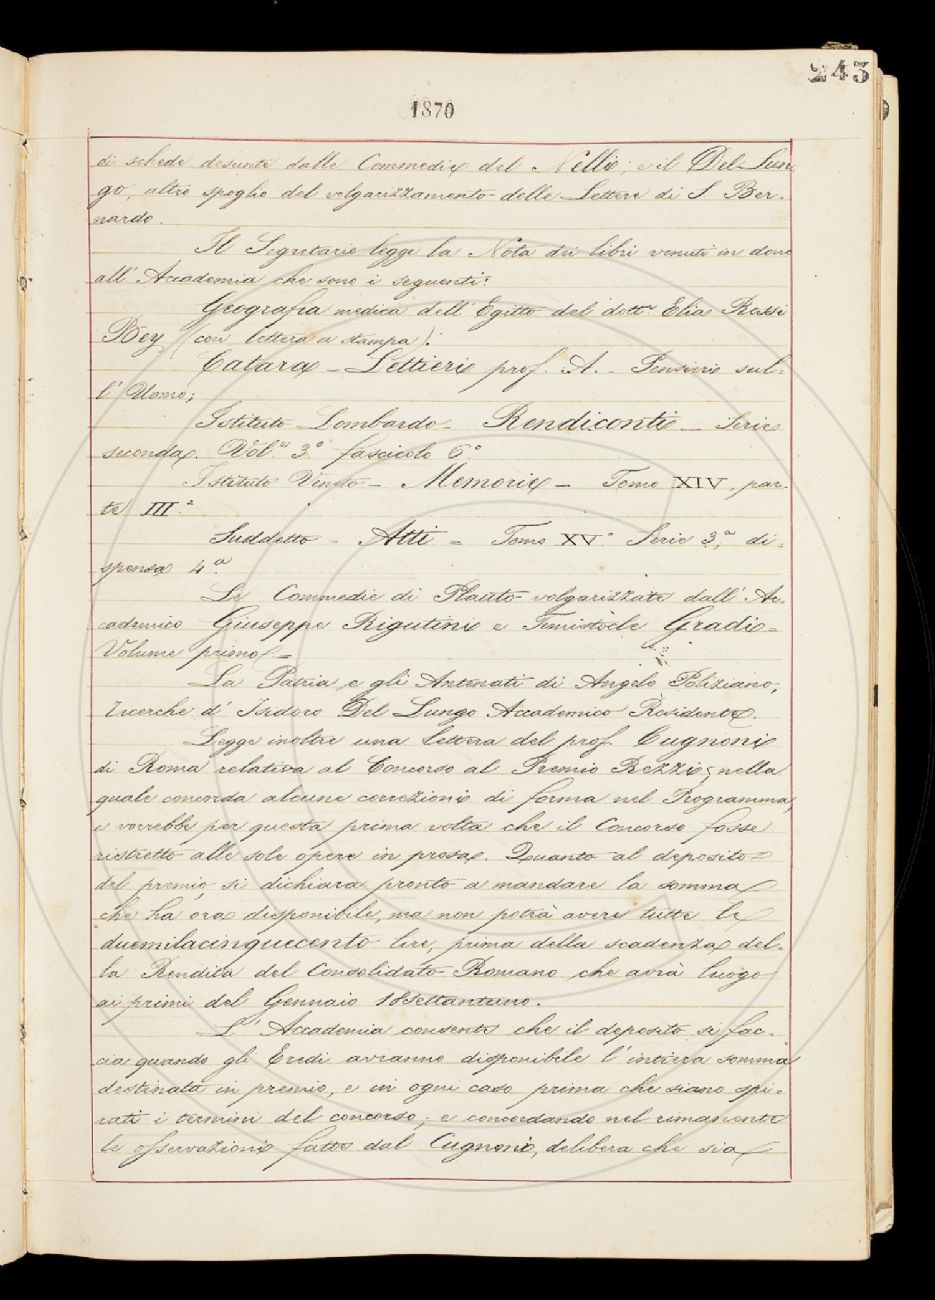 243
1870
di schede desunte dalle Commedie del Nelli, e il Del Lun
go, altro spoglio del volgarizzamento delle Lettere di S. Ber-
nardo.
Il Segretario legge la Nota dei libri venuti in dono
all' Accademia che sono i seguenti:
Geografia medica dell' Egitto del dott.r Elia Rossi
Bey (con lettera a stampa);
Catara - Lettieri prof. A. - Pensieri sul-
l' Uomo;
Istituto Lombardo - Rendiconti - Serie
seconda. Vol.e 3.o fascicolo 6.o
Istituto Veneto - Memorie - Tomo XIV, par-
te III.a
Suddetto - Atti - Tomo XV.o Serie 3.a, di-
spensa 4.a
Le Commedie di Plauto volgarizzate dall' Ac-
cademico Giuseppe Rigutini e Temistocle Gradi -
Volume primo -
La Patria e gli Antenati di Angelo Poliziano,
ricerche d' Isidoro Del Lungo Accademico Residente.
Legge inoltre una lettera del prof. Cugnoni
di Roma relativa al Concorso al Premio Rezzi; nella
quale concorda alcune correzioni di forma nel Programma,
e vorrebbe per questa prima volta che il Concorso fosse
ristretto alle sole opere in prosa. Quanto al deposito
del premio, si dichiara pronto a mandare la somma
che ha ora disponibile, ma non potrà avere tutte le
duemilacinquecento lire, prima della scadenza del-
la Rendita del Consolidato Romano che avrà luogo
ai primi del Gennaio 18settantuno.
L' Accademia consente che il deposito si fac-
cia quando gli Eredi avranno disponibile l' intiera somma
destinata in premio, e in ogni caso prima che siano spi-
rati i termini del concorso; e concordando nel rimanente
le osservazioni fatte dal Cugnoni, delibera che sia